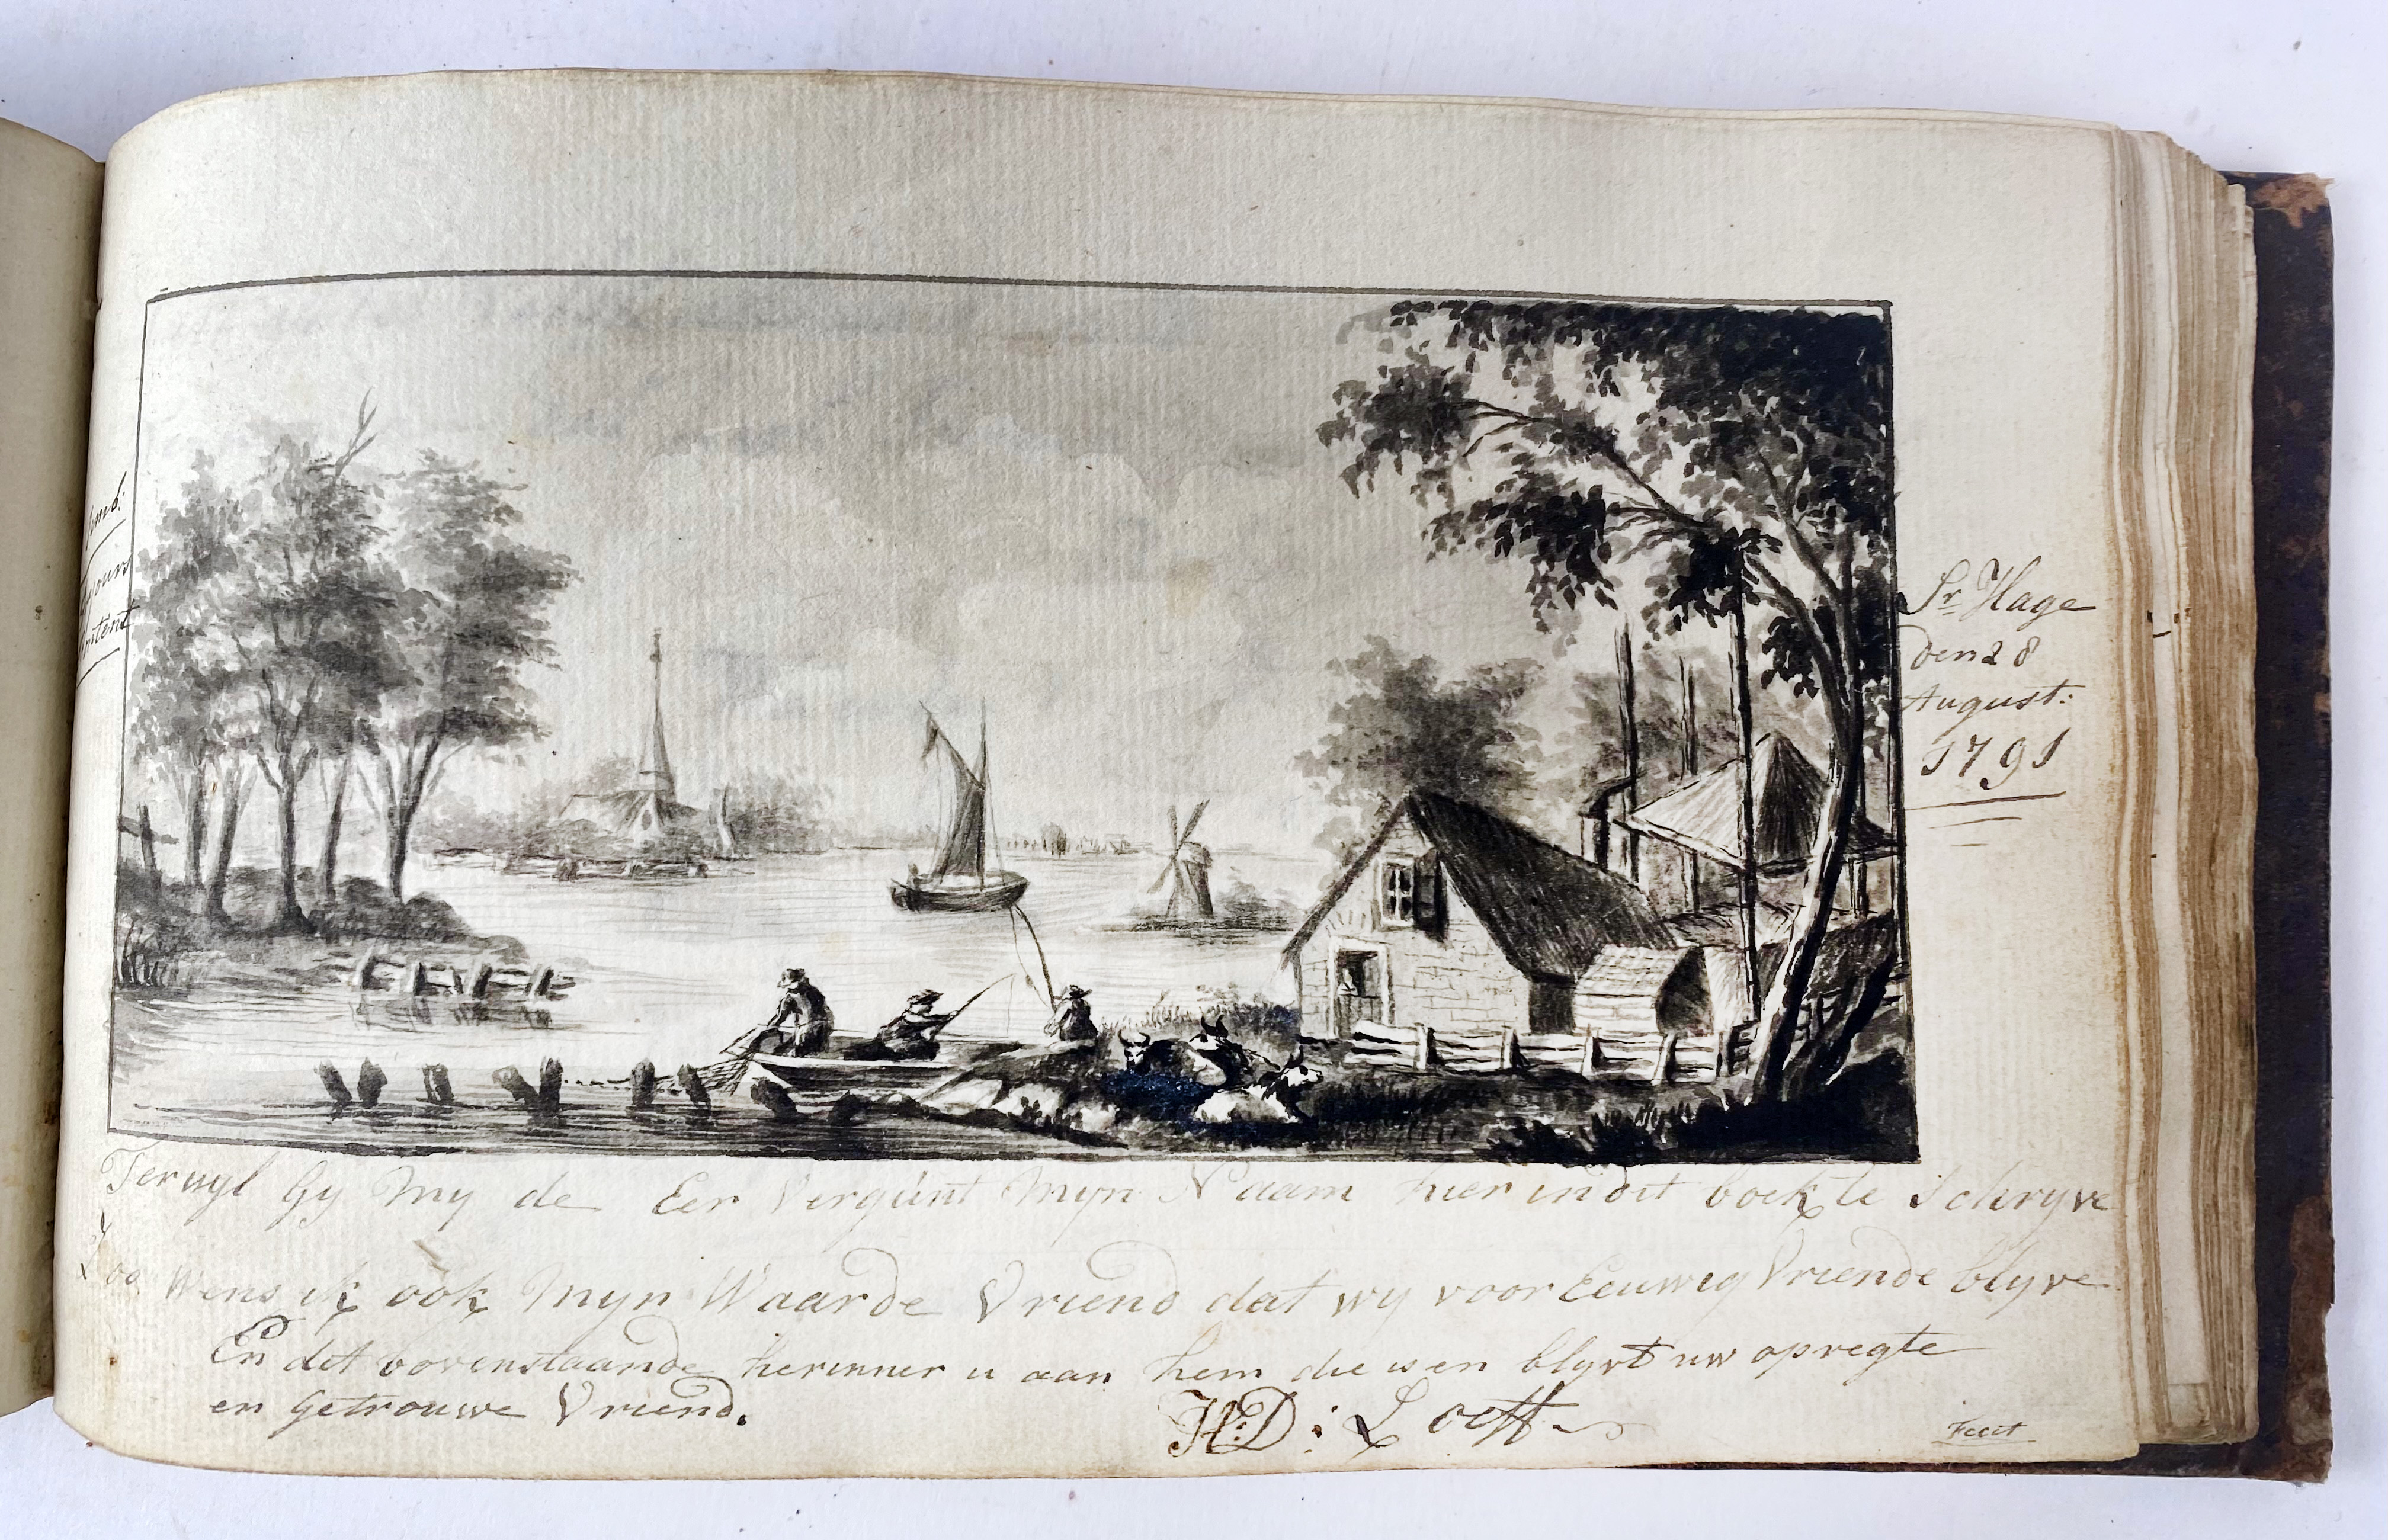 Sijmb:
Toujours
Content
Sr Hage
den 28
August:
1791
Terwyl Gy My de Eer Vergunt Myn Naam hier in dit boek te Schryve
Zoo Wens ik ook Myn Waarde Vriend dat wy voor Eeuwig Vriende blyve
En dit bovenstaande herinner u aan hem die is en blyvt uw opregte
en Getrouwe Vriend.
H:D: Loeff
Fecit